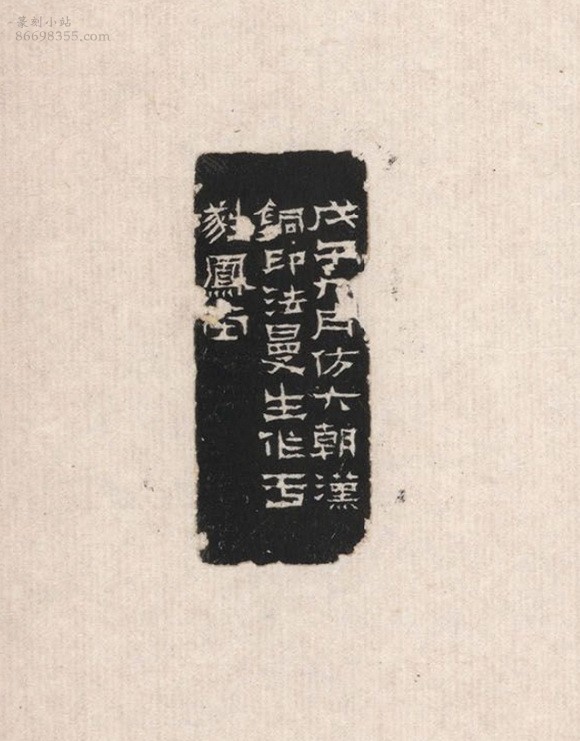 篆刻小站
86698355.com
戊子九月仿六朝漢
銅印法曼生作
鳳